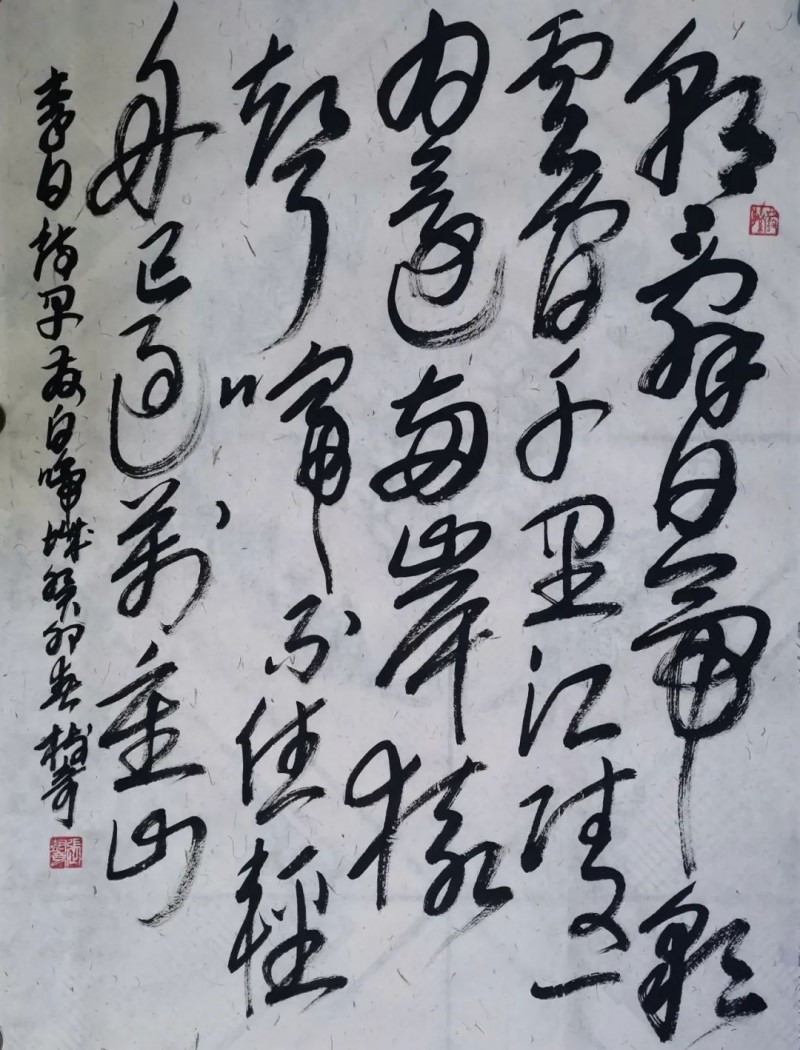 朝辭白帝彩
雲間千里江陵一
日還兩岸猿
聲啼不住輕
舟已過萬重山
李白詩早發白啼城癸卯春